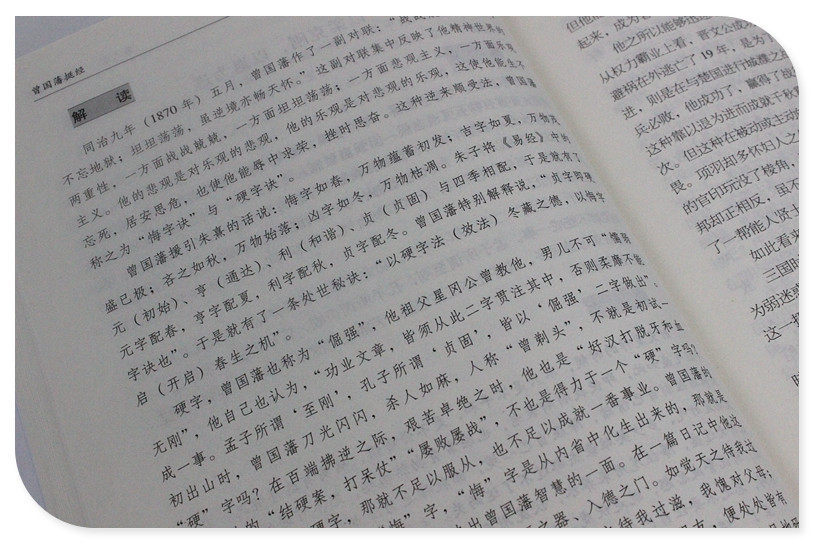 曾国藩挺经
解 读
同治九年（1870年）五月，曾国藩作了一副对联：“战战
不忘地狱；坦坦荡荡，虽逆境亦畅天怀。”这副对联集中反映了他精神世界的
两重性，一方面战战兢兢，一方面坦坦荡荡；一方面悲观主义，一方面乐观
主义。他的悲观是对乐观的悲观，他的乐观是对悲观的乐观，这使他能生不
忘死，居安思危，也使他能辱中求荣，挫时思奋。这种逆来顺受法，曾国藩
称之为“悔字诀”与“硬字诀”。
曾国藩援引朱熹的话说：悔字如春，万物蕴蓄初发；吉字如夏，万物茂
盛已极；吝之如秋，万物始落；凶字如冬，万物枯凋。朱子将《易经》中的
元（初始）、亨（通达）、利（和谐）、贞（贞固）与四季相配，于是就有了
元字配春，亨字配夏，利字配秋，贞字配冬。曾国藩特别解释说，“贞字即硬
字诀也”。于是就有了一条处世秘诀：“以硬字法（效法）冬藏之德，以悔字
启（开启）春生之机”。
硬字，曾国藩也称为“倔强”，他祖父星冈公曾教他，男儿不可“懦弱
无刚”，他自己也认为，“功业文章，皆须从此二字贯注其中，否则柔靡不能
成一事。孟子所谓‘至刚’，孔子所谓‘贞固’，皆以‘倔强’二字做出”；
初出山时，曾国藩刀光闪闪，杀人如麻，人称“曾剃头”，不就是初试一
“硬”字吗？在百端拂逆之际，艰苦卓绝之时，他也是“好汉打脱牙和血
的“结硬案，打呆仗”“屡败屡战”，不也是得力于一个“硬”字吗？
硬字，那就不足以服从，也不足以成就一番事业。曾国藩的
“悔”字，“悔”字是从内省中化生出来的，那就是
出曾国藩智慧的一面。在一篇日记中他这
之器、入德之门。如觉天之待我过
待我过滋，我愧对父母；
友，便处处皆有
但他
起来，成为
他之所以能够
从权力霸业上看，晋文公
避祸在外逃亡了19年，是为
进，则是在与楚国进行城濮之
兵必败，他成功了，赢得了
这种靠以退为进而成就千秋
次。但这种在被动或主动
畏。项羽却多怀妇人之
的官印玩没了棱角，
邦却正相反，虽不
了一帮能人贤士
如此看来
三国时
为弱迷惑
这一